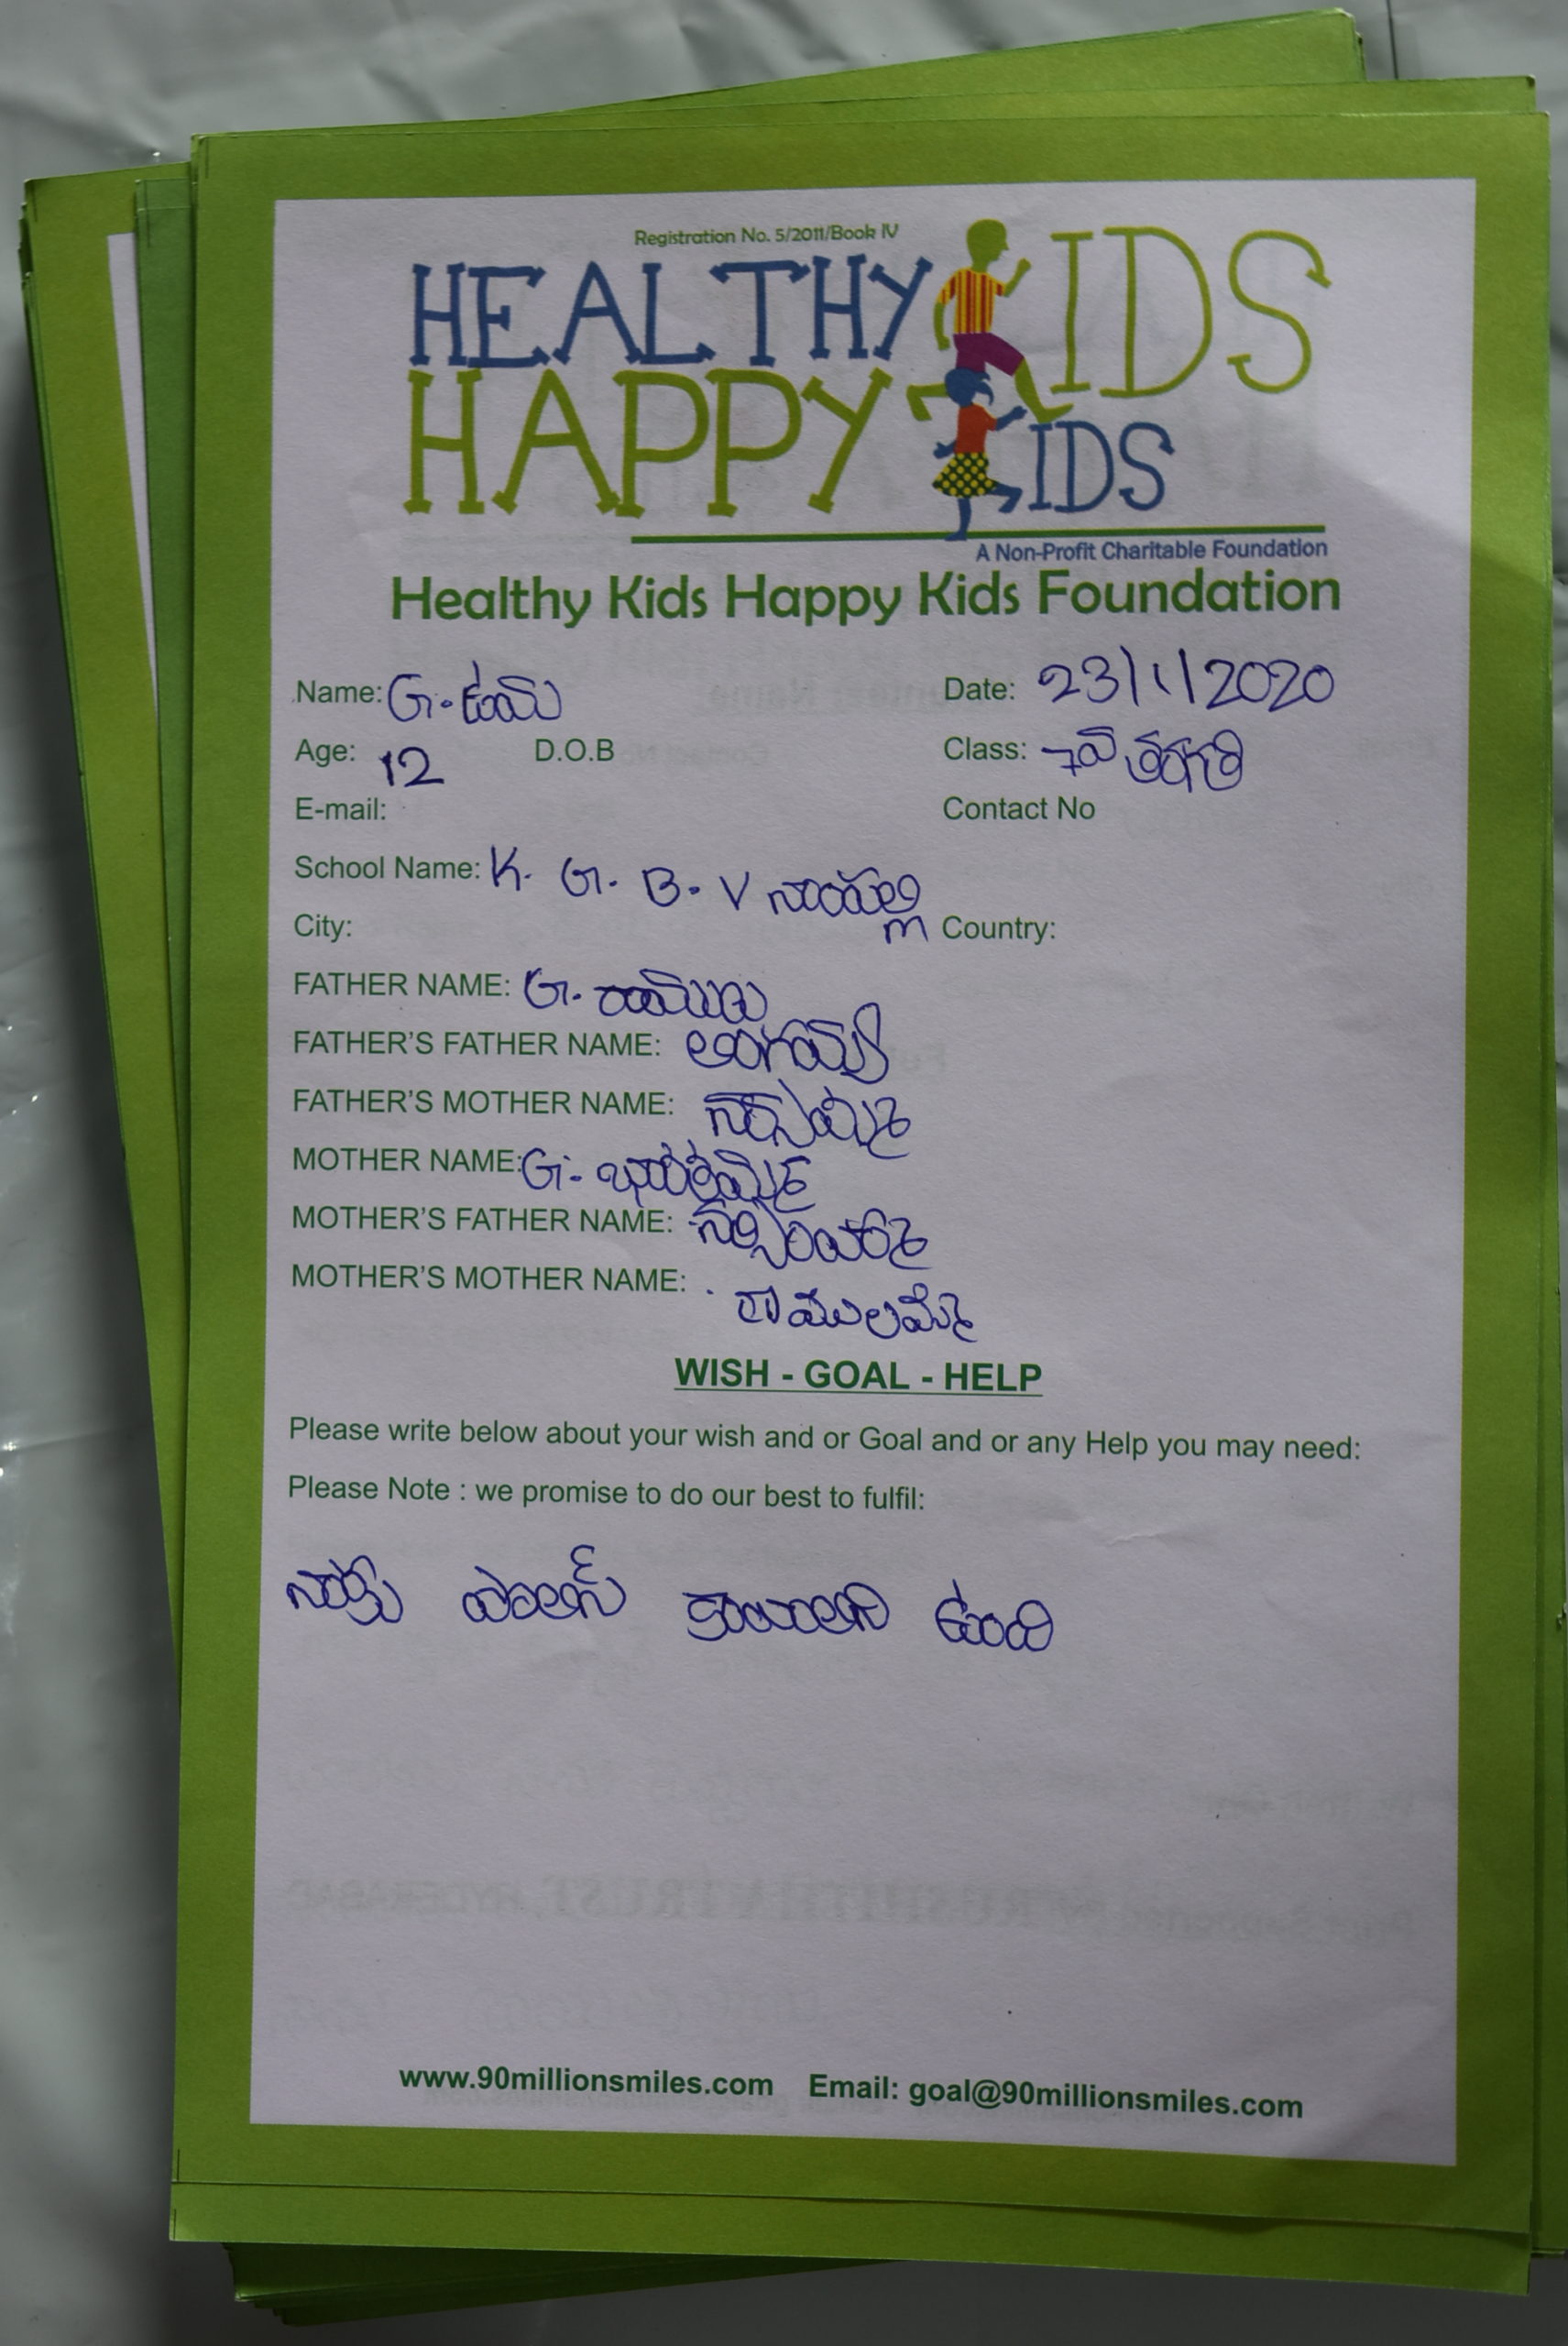 Registration No. 5/2011/Book IV
HEALTHY KIDS
HAPPY KIDS
A Non-Profit Charitable Foundation
Healthy Kids Happy Kids Foundation
Name: G. ఉమ Date: 23/1/2020
Age: 12 D.O.B Class: 7వ తరగతి
E-mail: Contact No
School Name: K. G. B. V
City: Country:
FATHER NAME: G. రాములు
FATHER'S FATHER NAME:
FATHER'S MOTHER NAME: నర్సమ్మ
MOTHER NAME: G. భారతమ్మ
MOTHER'S FATHER NAME:
MOTHER'S MOTHER NAME: రాములమ్మ
WISH - GOAL - HELP
Please write below about your wish and or Goal and or any Help you may need:
Please Note : we promise to do our best to fulfil:
నాకు పోలీస్ కావాలని ఉంది
www.90millionsmiles.com Email: goal@90millionsmiles.com